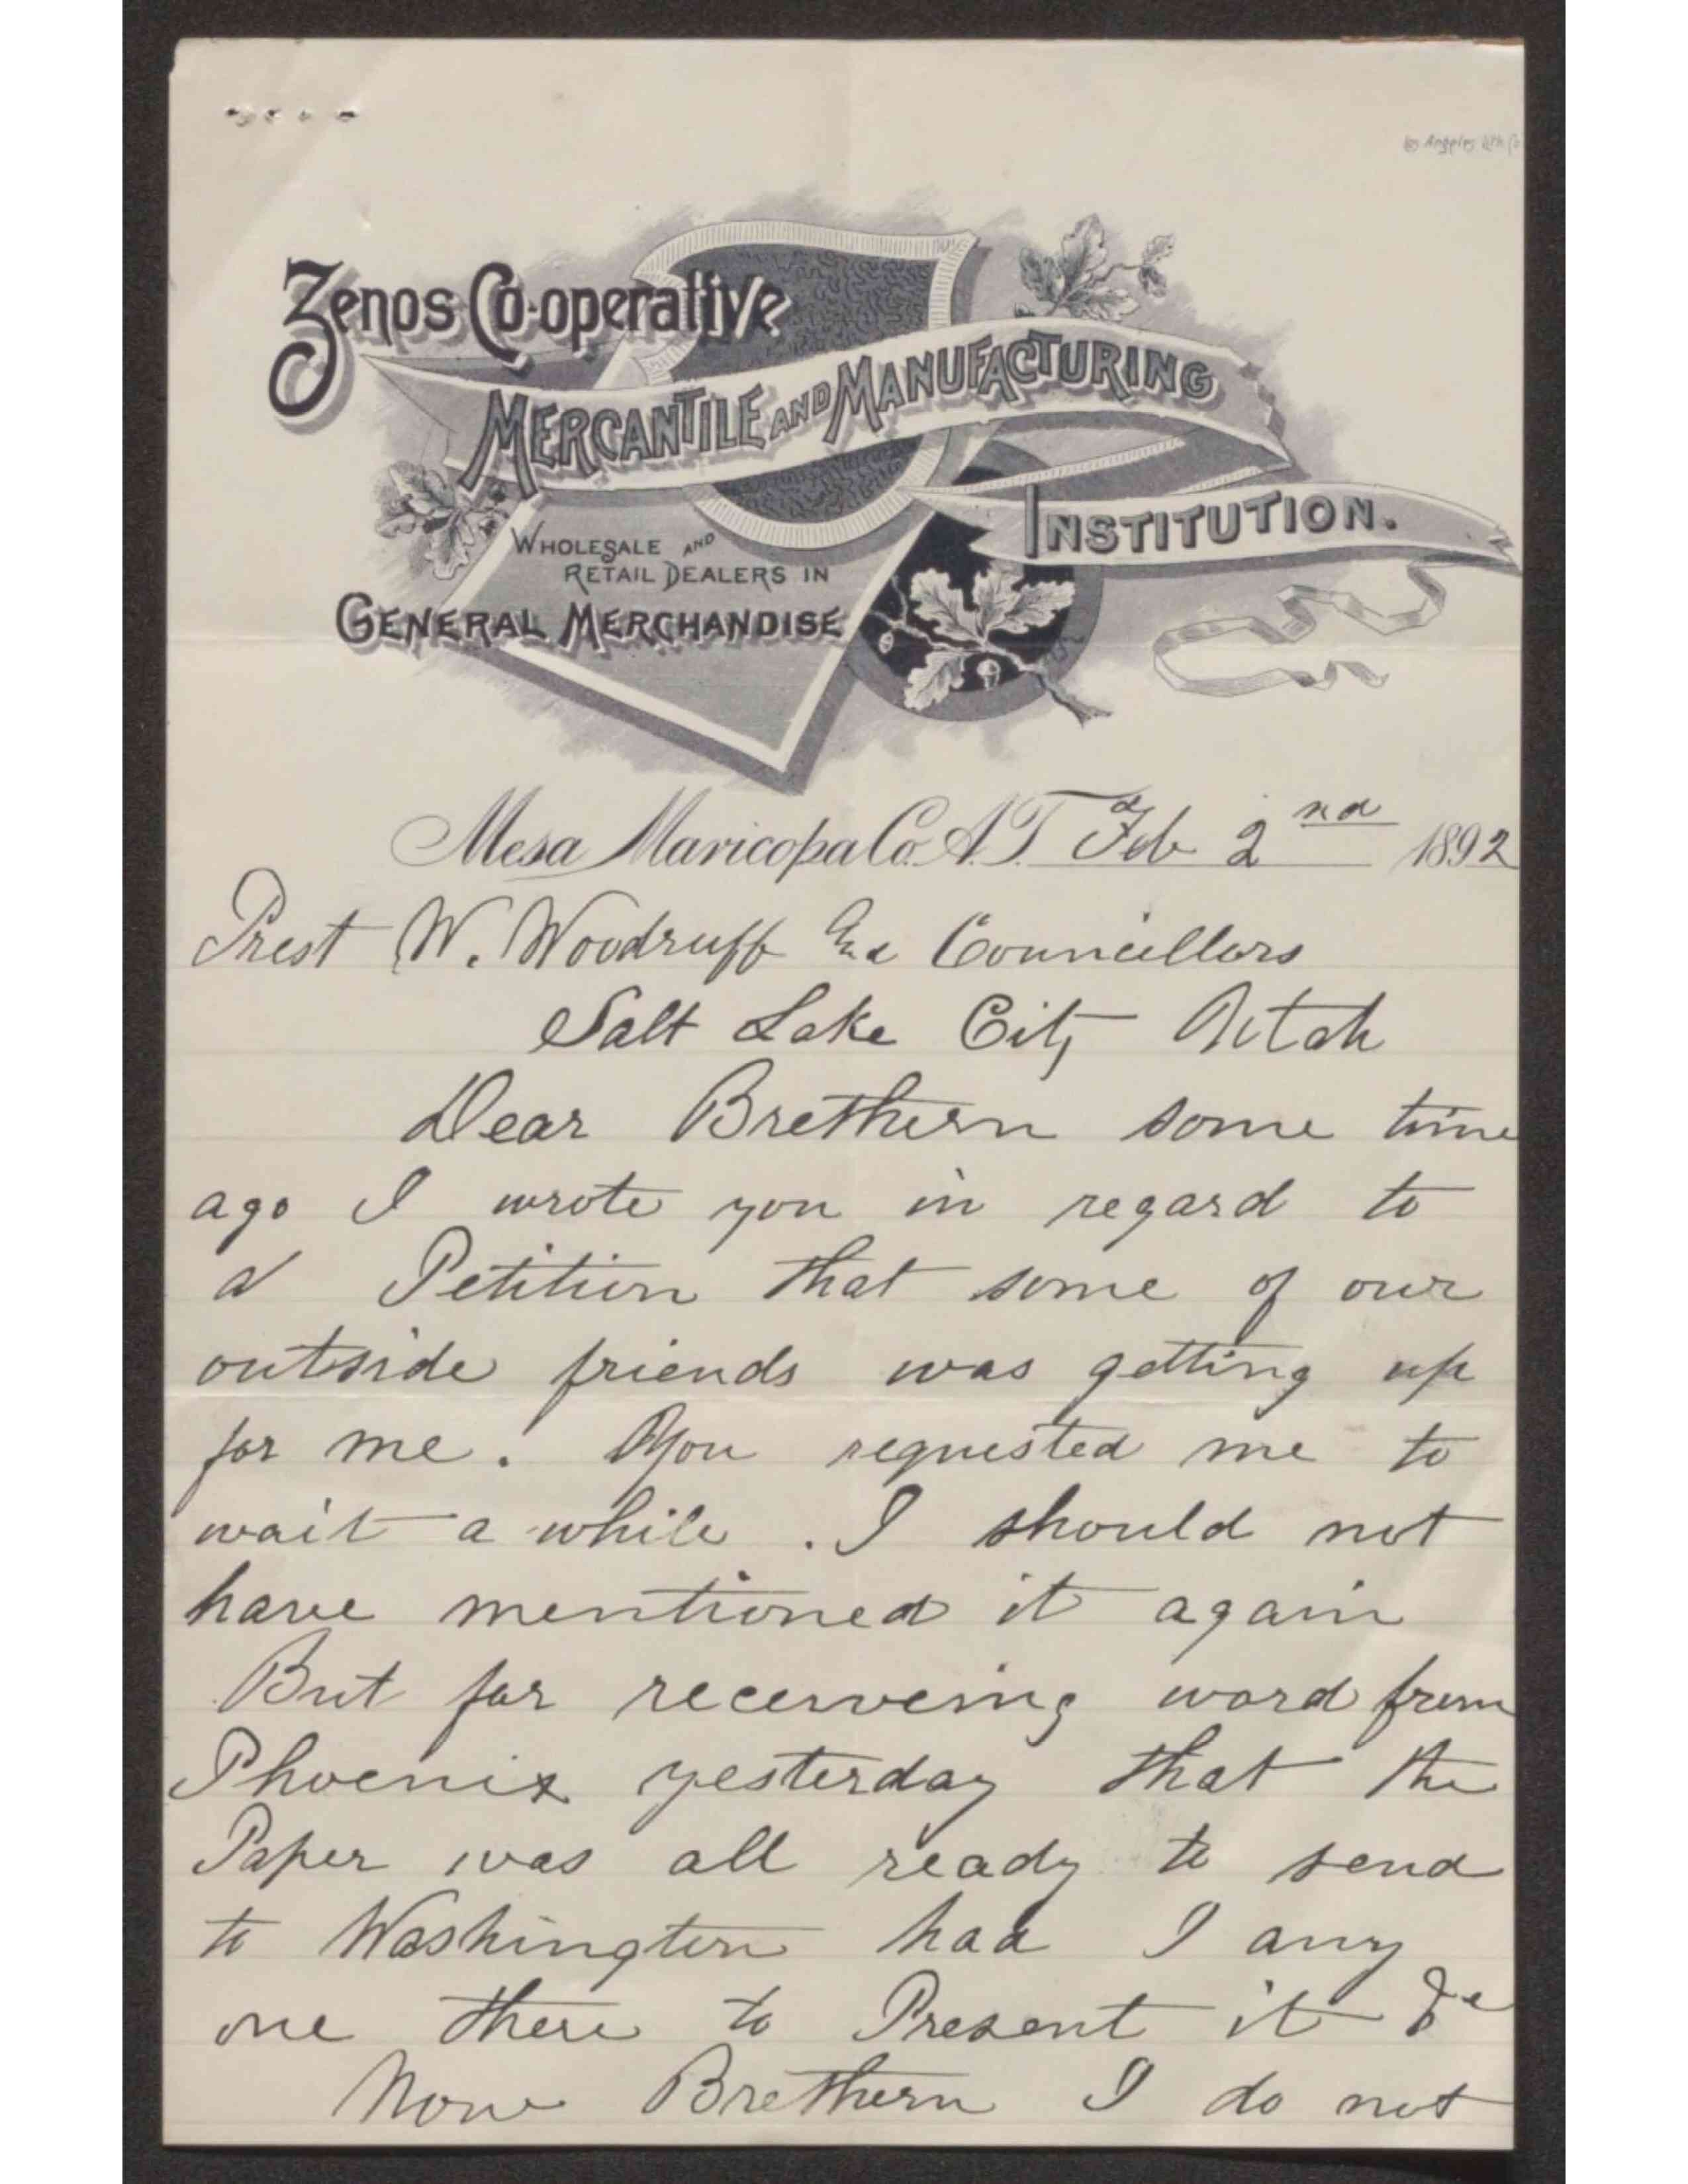 Los Angeles Lith Co
Zenos Co-operative
Mercantile and Manufacturing
Institution.
Wholesale and
Retail Dealers in
General Merchandise
Mesa Maricopa Co. A.T. Feb 2nd 1892
Prest W. Woodruff & Councillors
Salt Lake City Utah
Dear Brethern some time
ago I wrote you in regard to
a Petition that some of our
outside friends was getting up
for me. You requested me to
wait a while. I should not
have mentioned it again
But for receiveing word from
Phoenix yesterday that the
Paper was all ready to send
to Washington had I any
one there to Present it &c
Now Brethern I do not